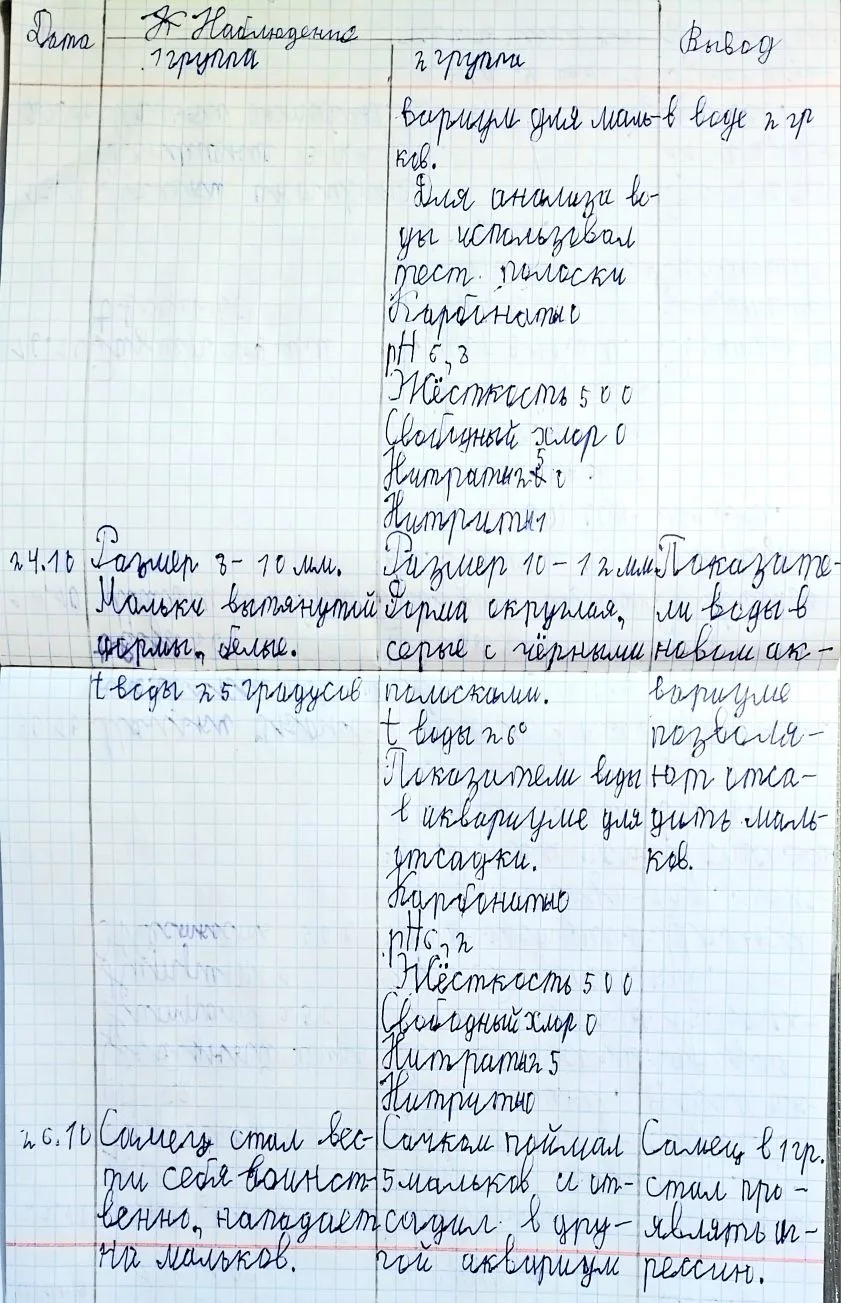 Дата
Наблюдение
Вывод
1 группа
2 группа
вариум для маль-
ков.
Для анализа во-
ды использовал
тест полоски
Карбонаты 0
pH 6,8
Жёсткость 500
Свободный хлор 0
Нитраты 250
Нитриты 1
в воде 2 гр
24.10
Размер 8-10 мм.
Мальки вытянутой
формы, белые.
t воды 25 градусов
Размер 10-12 мм
Форма округлая,
серые с чёрными
полосками.
t воды 26°
Показатели воды
в аквариуме для
отсадки.
Карбонаты 0
pH 6,2
Жёсткость 500
Свободный хлор 0
Нитраты 25
Нитриты 0
Показате-
ли воды в
новом ак-
вариуме
позволя-
ют отса-
дить маль-
ков.
26.10
Самец стал вес-
ти себя воинст-
венно, нападает
на мальков.
Сачком поймал
5 мальков и от-
садил в дру-
гой аквариум
Самец в 1 гр.
стал про-
являть аг-
рессию.